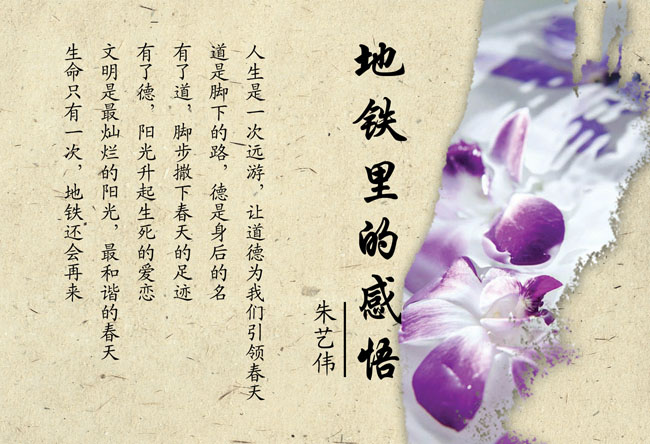 地铁里的感悟
朱艺伟
人生是一次远游，让道德为我们引领春天
道是脚下的路，德是身后的名
有了道，脚步撒下春天的足迹
有了德，阳光升起生死的爱恋
文明是最灿烂的阳光，最和谐的春天
生命只有一次，地铁还会再来